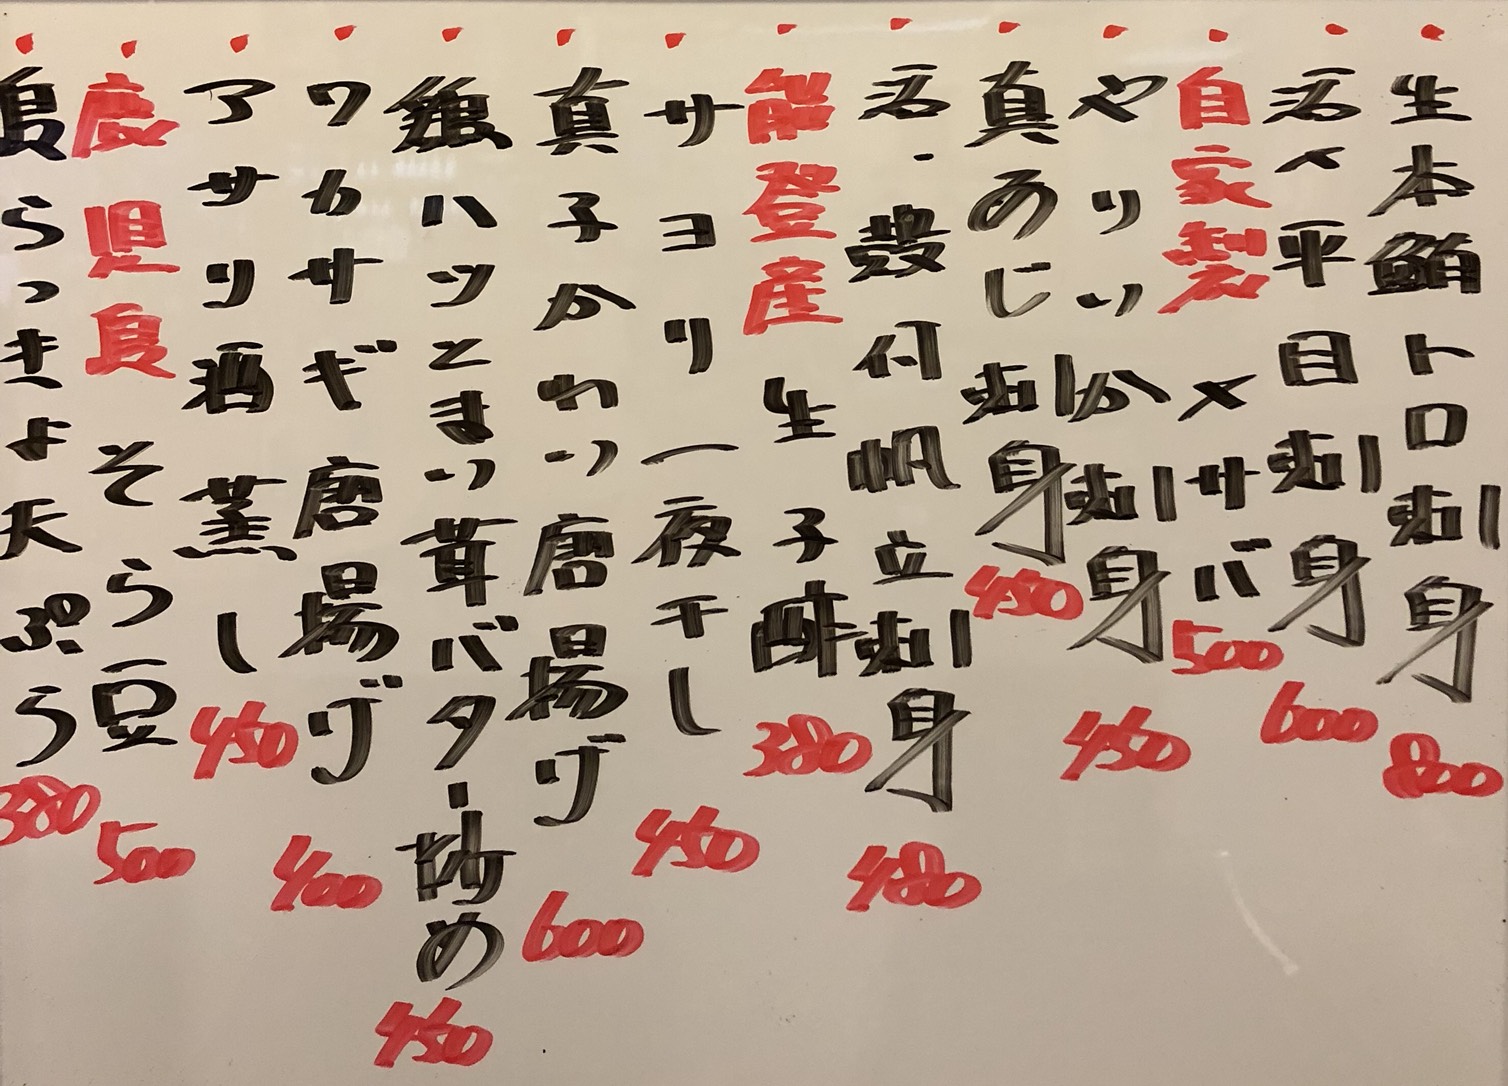 生本鮪トロ刺身 800
活〆平目刺身 600
自家製 〆サバ 500
やりいか刺身 450
真あじ刺身 450
活・殻付帆立刺身 480
能登産 生子酢 380
サヨリ一夜干し 450
真子かれい唐揚げ 600
鶏ハツとまい茸バター炒め 450
ワカサギ唐揚げ 400
アサリ酒蒸し 450
鹿児島 そら豆 500
島らっきょ天ぷら 380